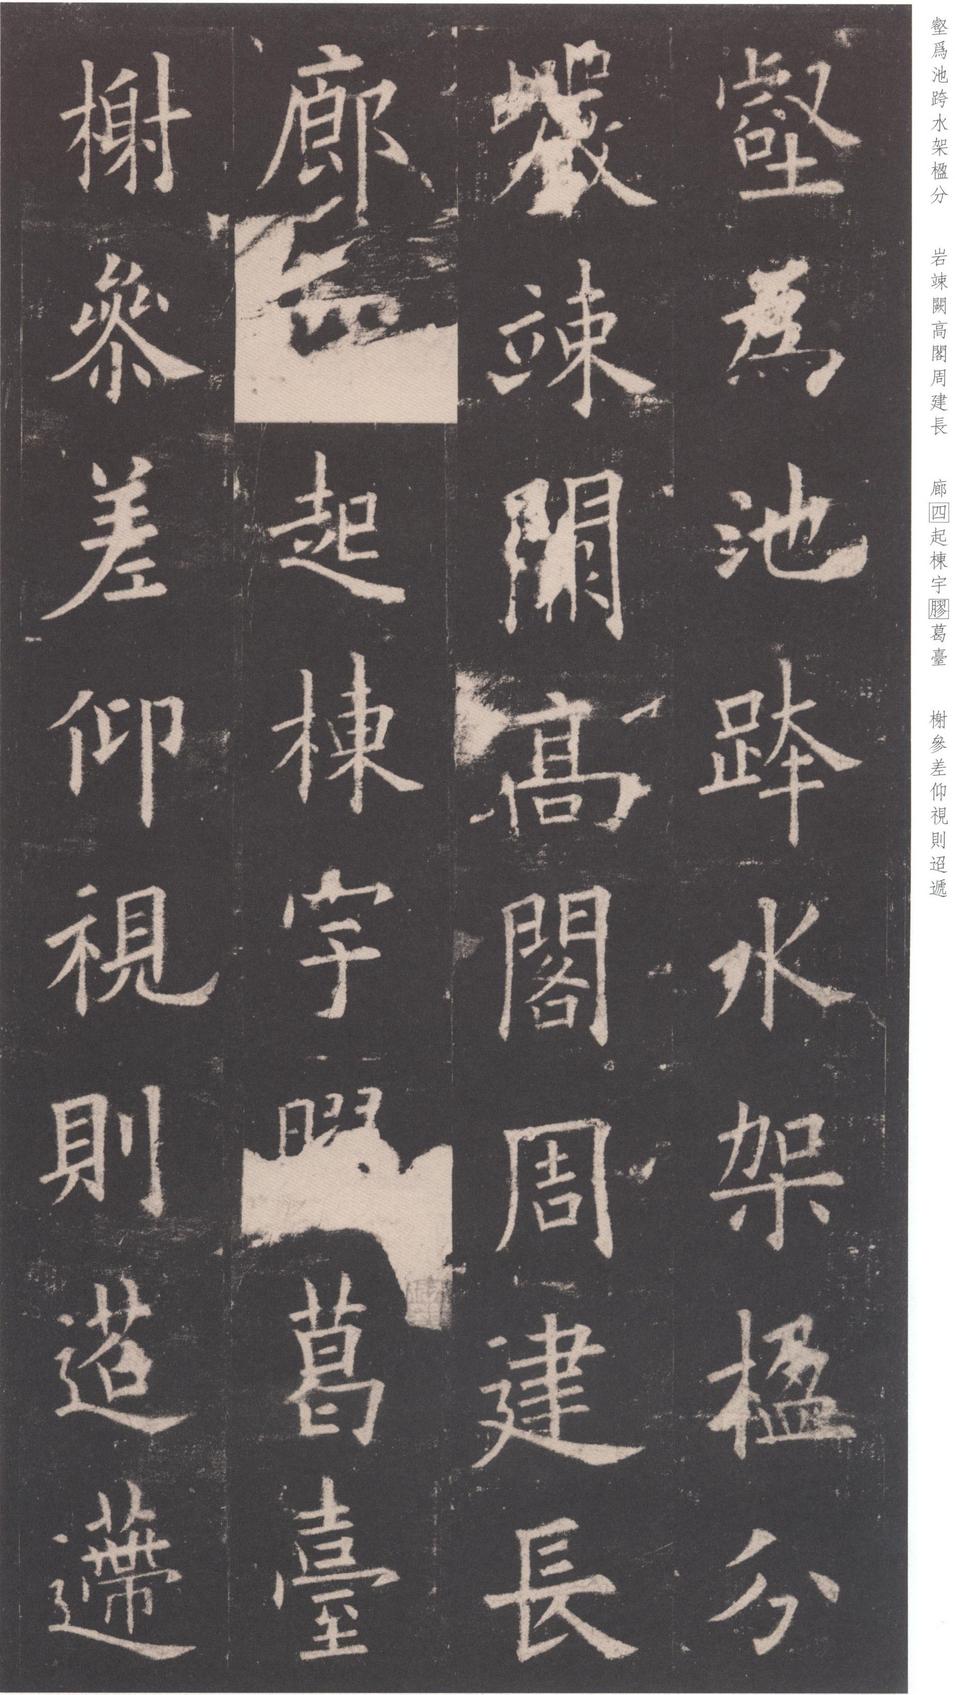 壑爲池跨水架楹分 岩竦闕高閣周建長 廊四起棟宇膠葛臺 榭參差仰視則迢遞
壑爲池跨水架楹分
巖竦闕高閣周建長
廊起棟宇葛臺
榭參差仰視則迢遰